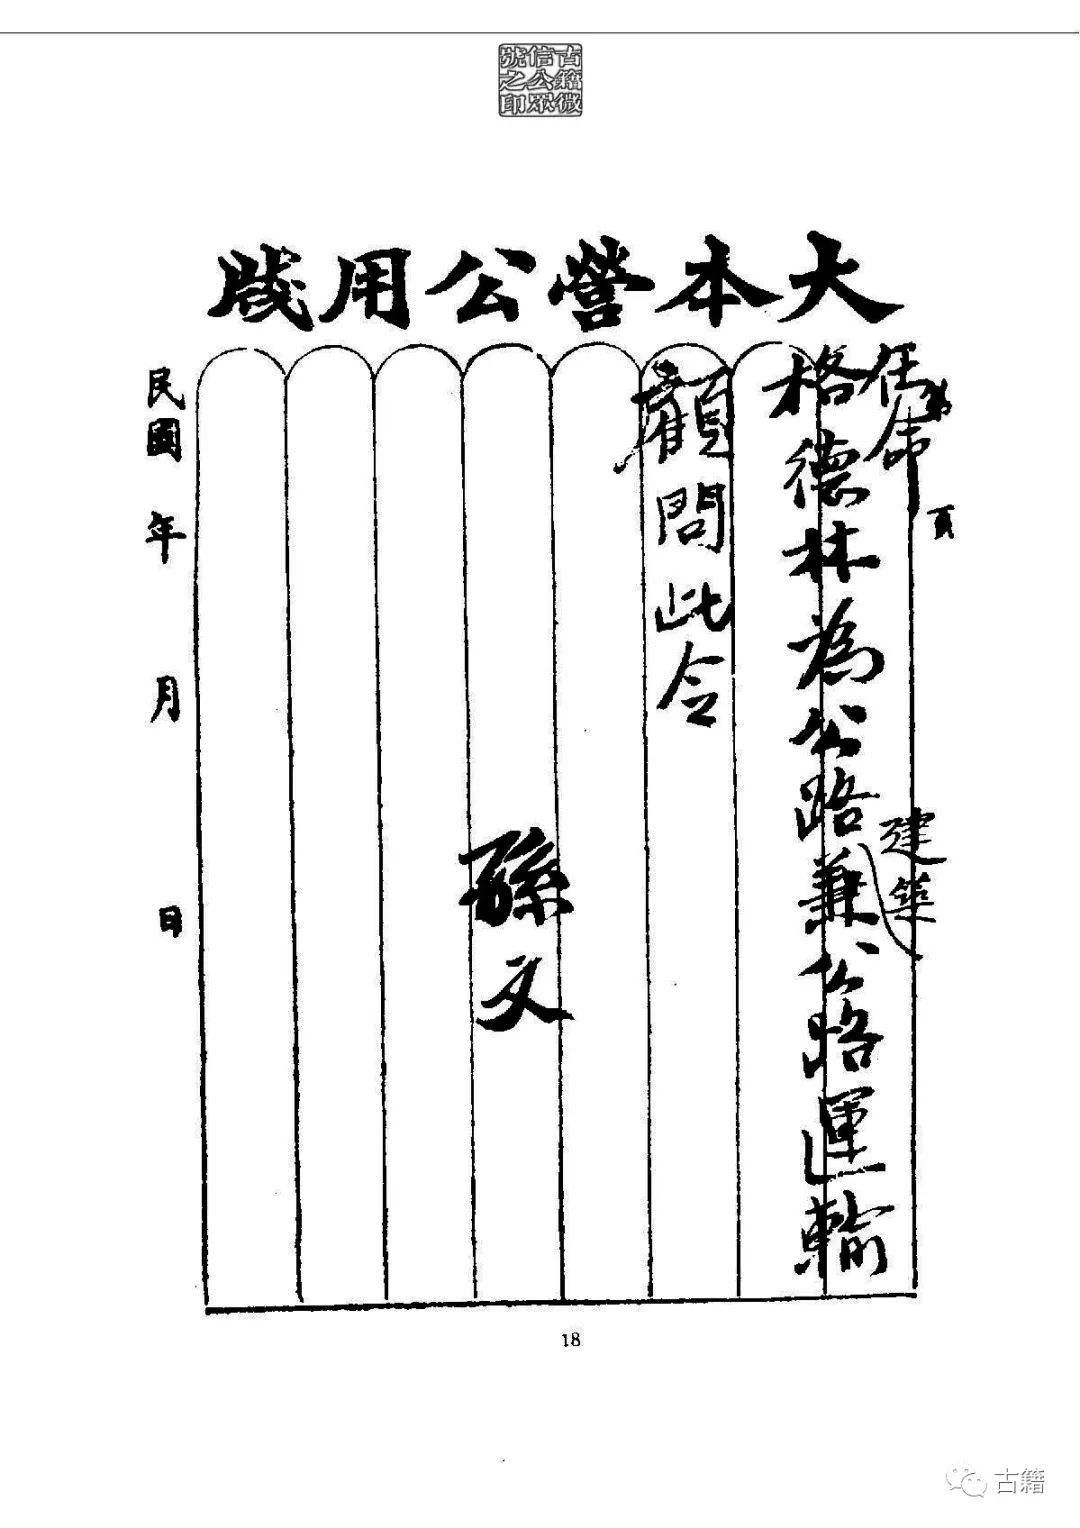 古籍微
信公眾
號之印
大本營公用牋
第 頁
任命
格德林為公路建築兼公路運輸
顧問此令
孫文
民國 年 月 日
18
古籍